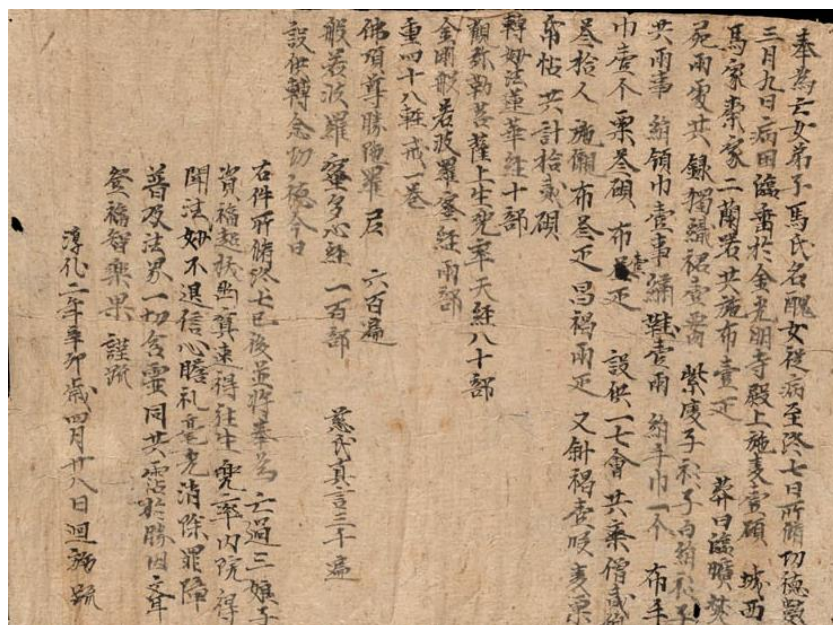 奉為亡女弟子馬氏名醜女從病至終七日所脩功德數
三月九日病困臨垂於金光明寺殿上施麦壹碩 城西
馬家索家二蘭若共施布壹疋 葬日臨壙焚
屍兩處共録獨織裙壹𦝫 紫
共兩事 絹領巾壹事 繡鞋壹兩 絹手巾一个 布手
巾壹个 粟叁碩 布壹疋 設供一七會共齋僧貳佰
叁拾人 施儭布叁疋 昌褐兩疋 又斜褐壹段 麦粟
帛帖共計拾貳碩
轉妙法蓮華經十部
觀弥勒菩薩上生兜率天經八十部
金剛般若波羅蜜經兩部
重四十八輕戒一卷
佛頂尊勝陁羅尼 六百遍
般若波羅蜜多心經一百部 慈氏真言三千遍
設供轉念功德今日
右件所脩終七已後並將奉為亡過三娘子
資福超拔幽冥速得往生兜率内院得
聞法妙不退信心瞻礼毫光消除罪障
普及法界一切含靈同共霑於勝因齊
登福智樂果 謹䟽
淳化二年辛卯歲四月廿八日迴施䟽